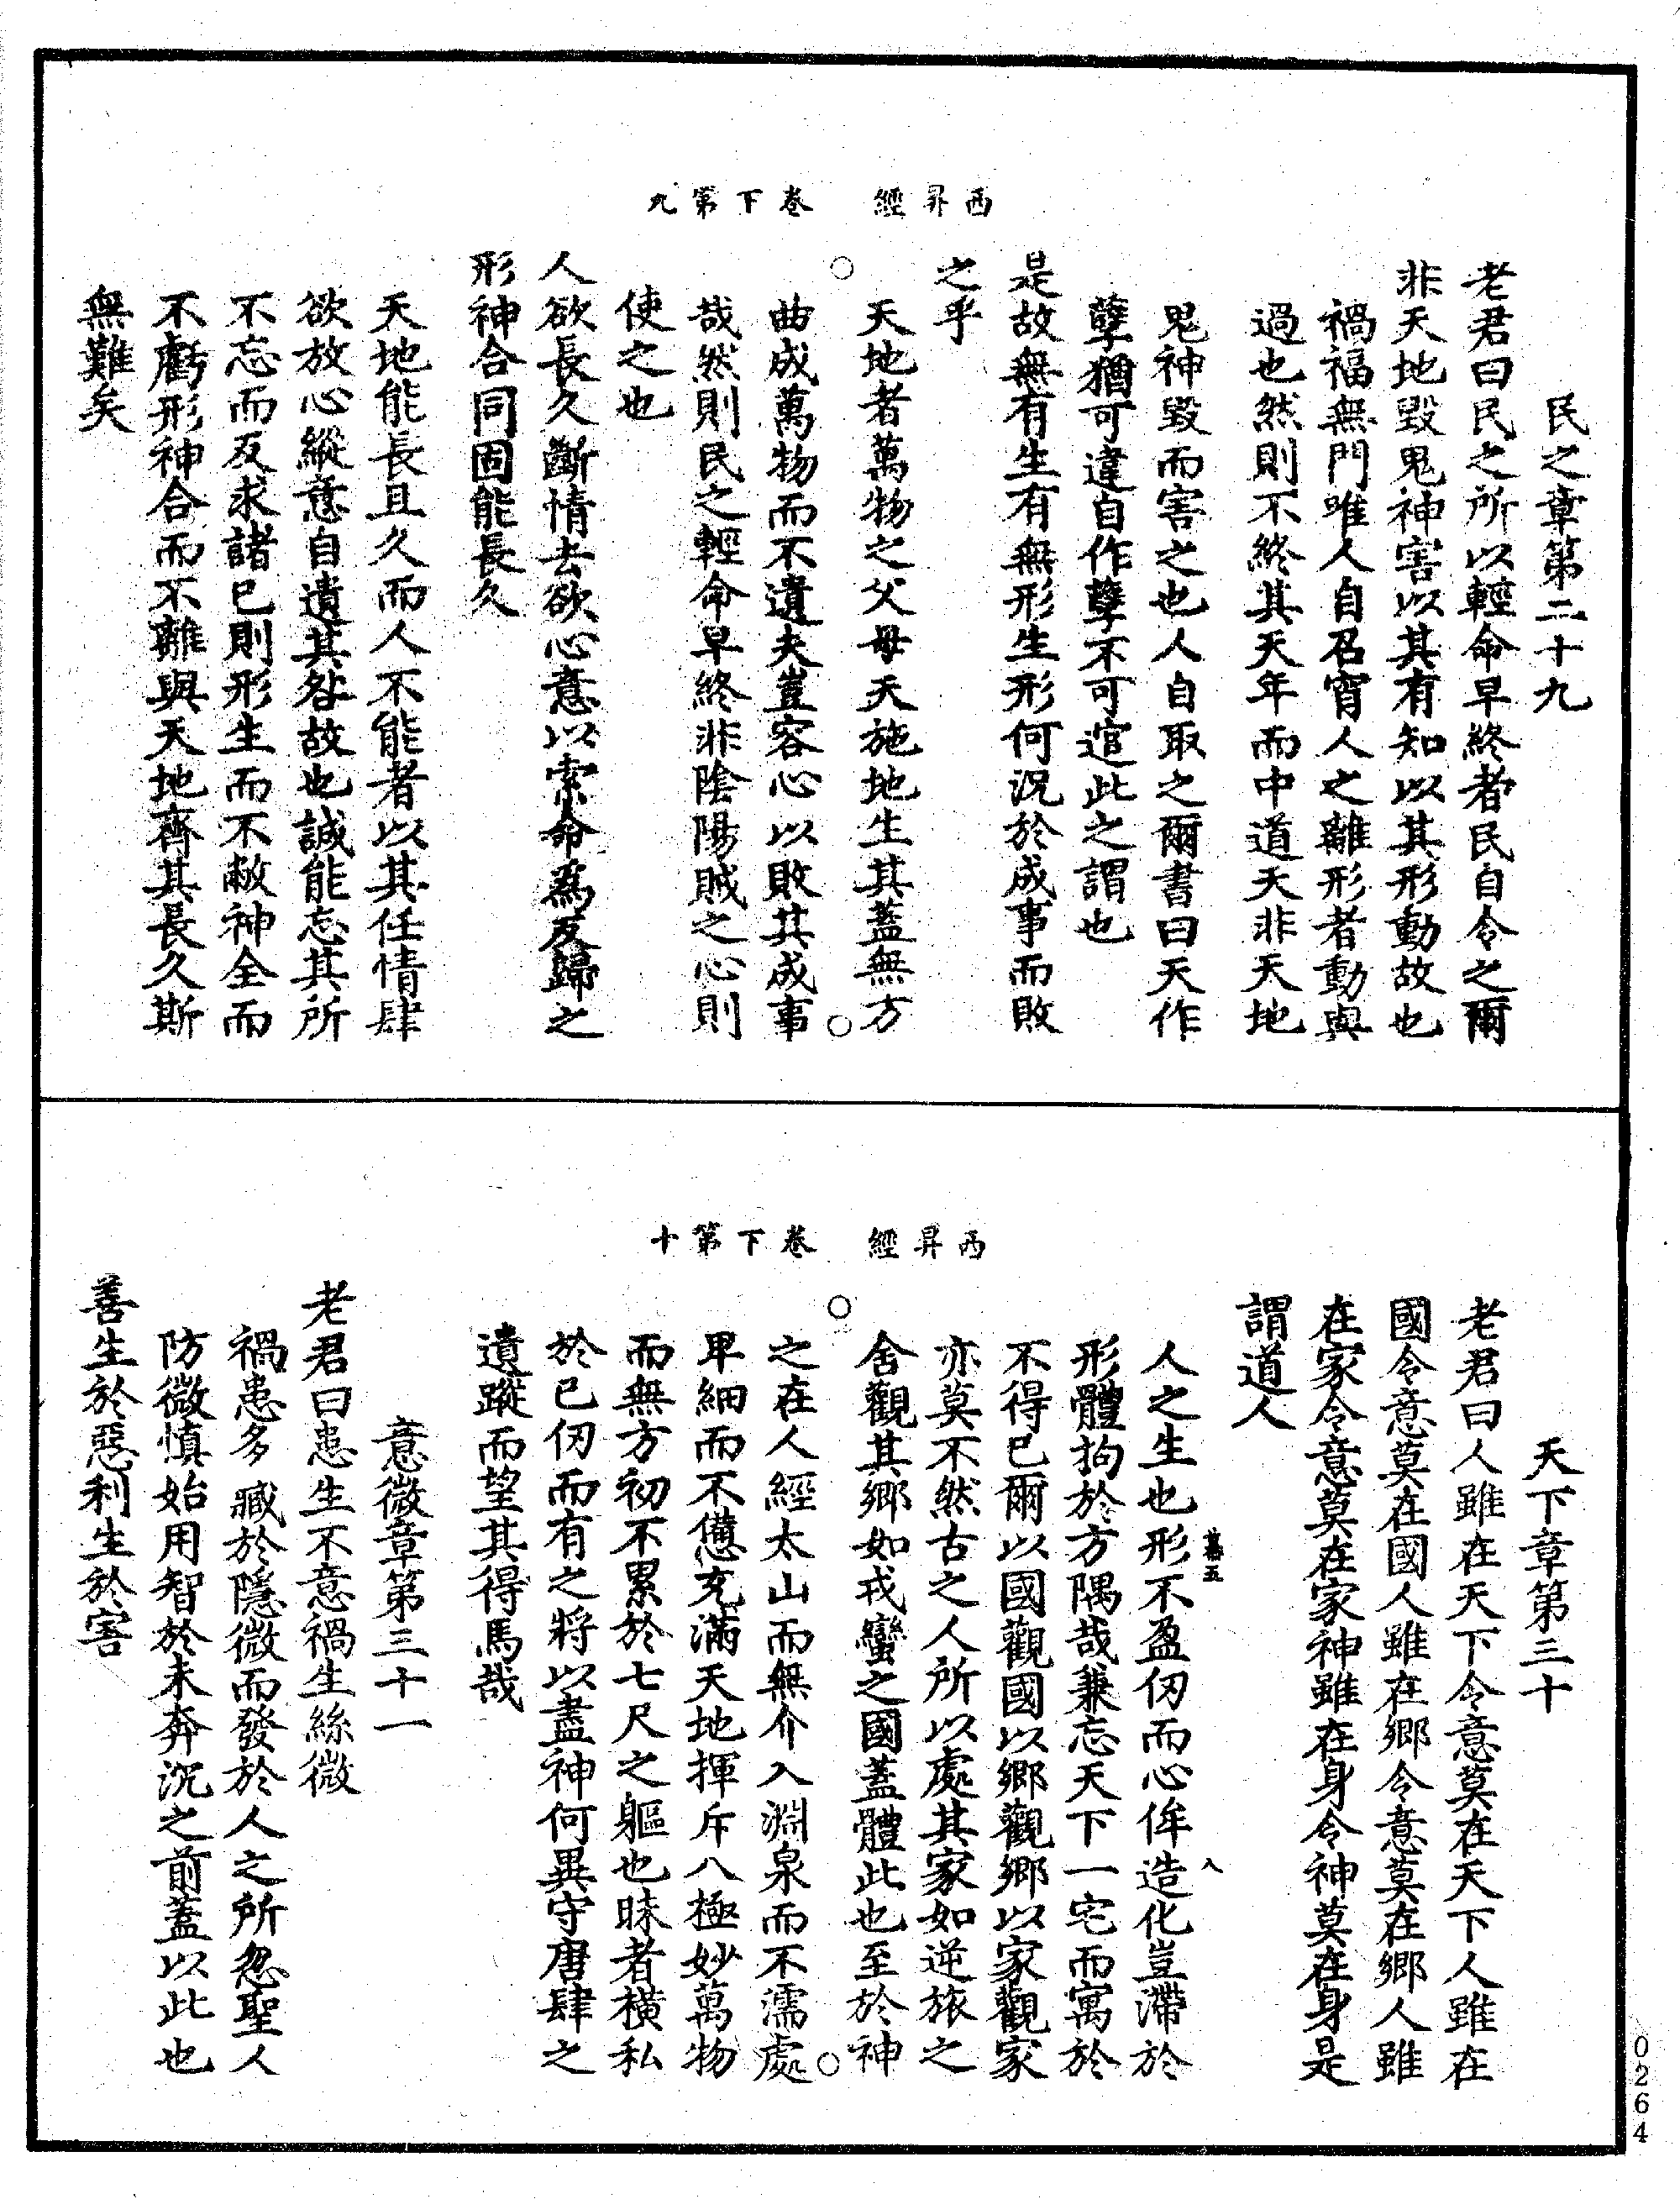 西昇經　卷下第九
民之章第二十九
老君曰民之所以輕命早終者民自令之爾
非天地毀鬼神害以其有知以其形動故也
禍福無門唯人自召宵人之離形者動與
過也然則不終其天年而中道夭非天地
鬼神毀而害之也人自取之爾書曰天作
孽猶可違自作孽不可逭此之謂也
是故無有生有無形生形何況於成事而敗
之乎
天地者萬物之父母天施地生其蓋無方
曲成萬物而不遺夫豈容心以敗其成事
哉然則民之輕命早終非陰陽賊之心則
使之也
人欲長久斷情去欲心意以索命為反歸之
形神合同固能長久
天地能長且久而人不能者以其任情肆
欲放心縱意自遺其咎故也誠能忘其所
不忘而反求諸己則形生而不敝神全而
不虧形神合而不離與天地齊其長久斯
無難矣
西昇經　卷下第十
天下章第三十
老君曰人雖在天下令意莫在天下人雖在
國令意莫在國人雖在鄉令意莫在鄉人雖
在家令意莫在家神雖在身令神莫在身是
謂道人
人之生也形不盈仞而心侔造化豈滯於
形體拘於方隅哉兼忘天下一宅而寓於
不得已爾以國觀國以鄉觀鄉以家觀家
亦莫不然古之人所以處其家如逆旅之
舍觀其鄉如戎蠻之國蓋體此也至於神
之在人經太山而無介入淵泉而不濡處
卑細而不憊充滿天地揮斥八極妙萬物
而無方初不累於七尺之軀也昧者橫私
於己仞而有之將以盡神何異守唐肆之
遺蹤而望其得馬哉
意微章第三十一
老君曰患生不意禍生絲微
禍患多臧於隱微而發於人之所忽聖人
防微慎始用智於未奔沉之前蓋以此也
善生於惡利生於害
0264